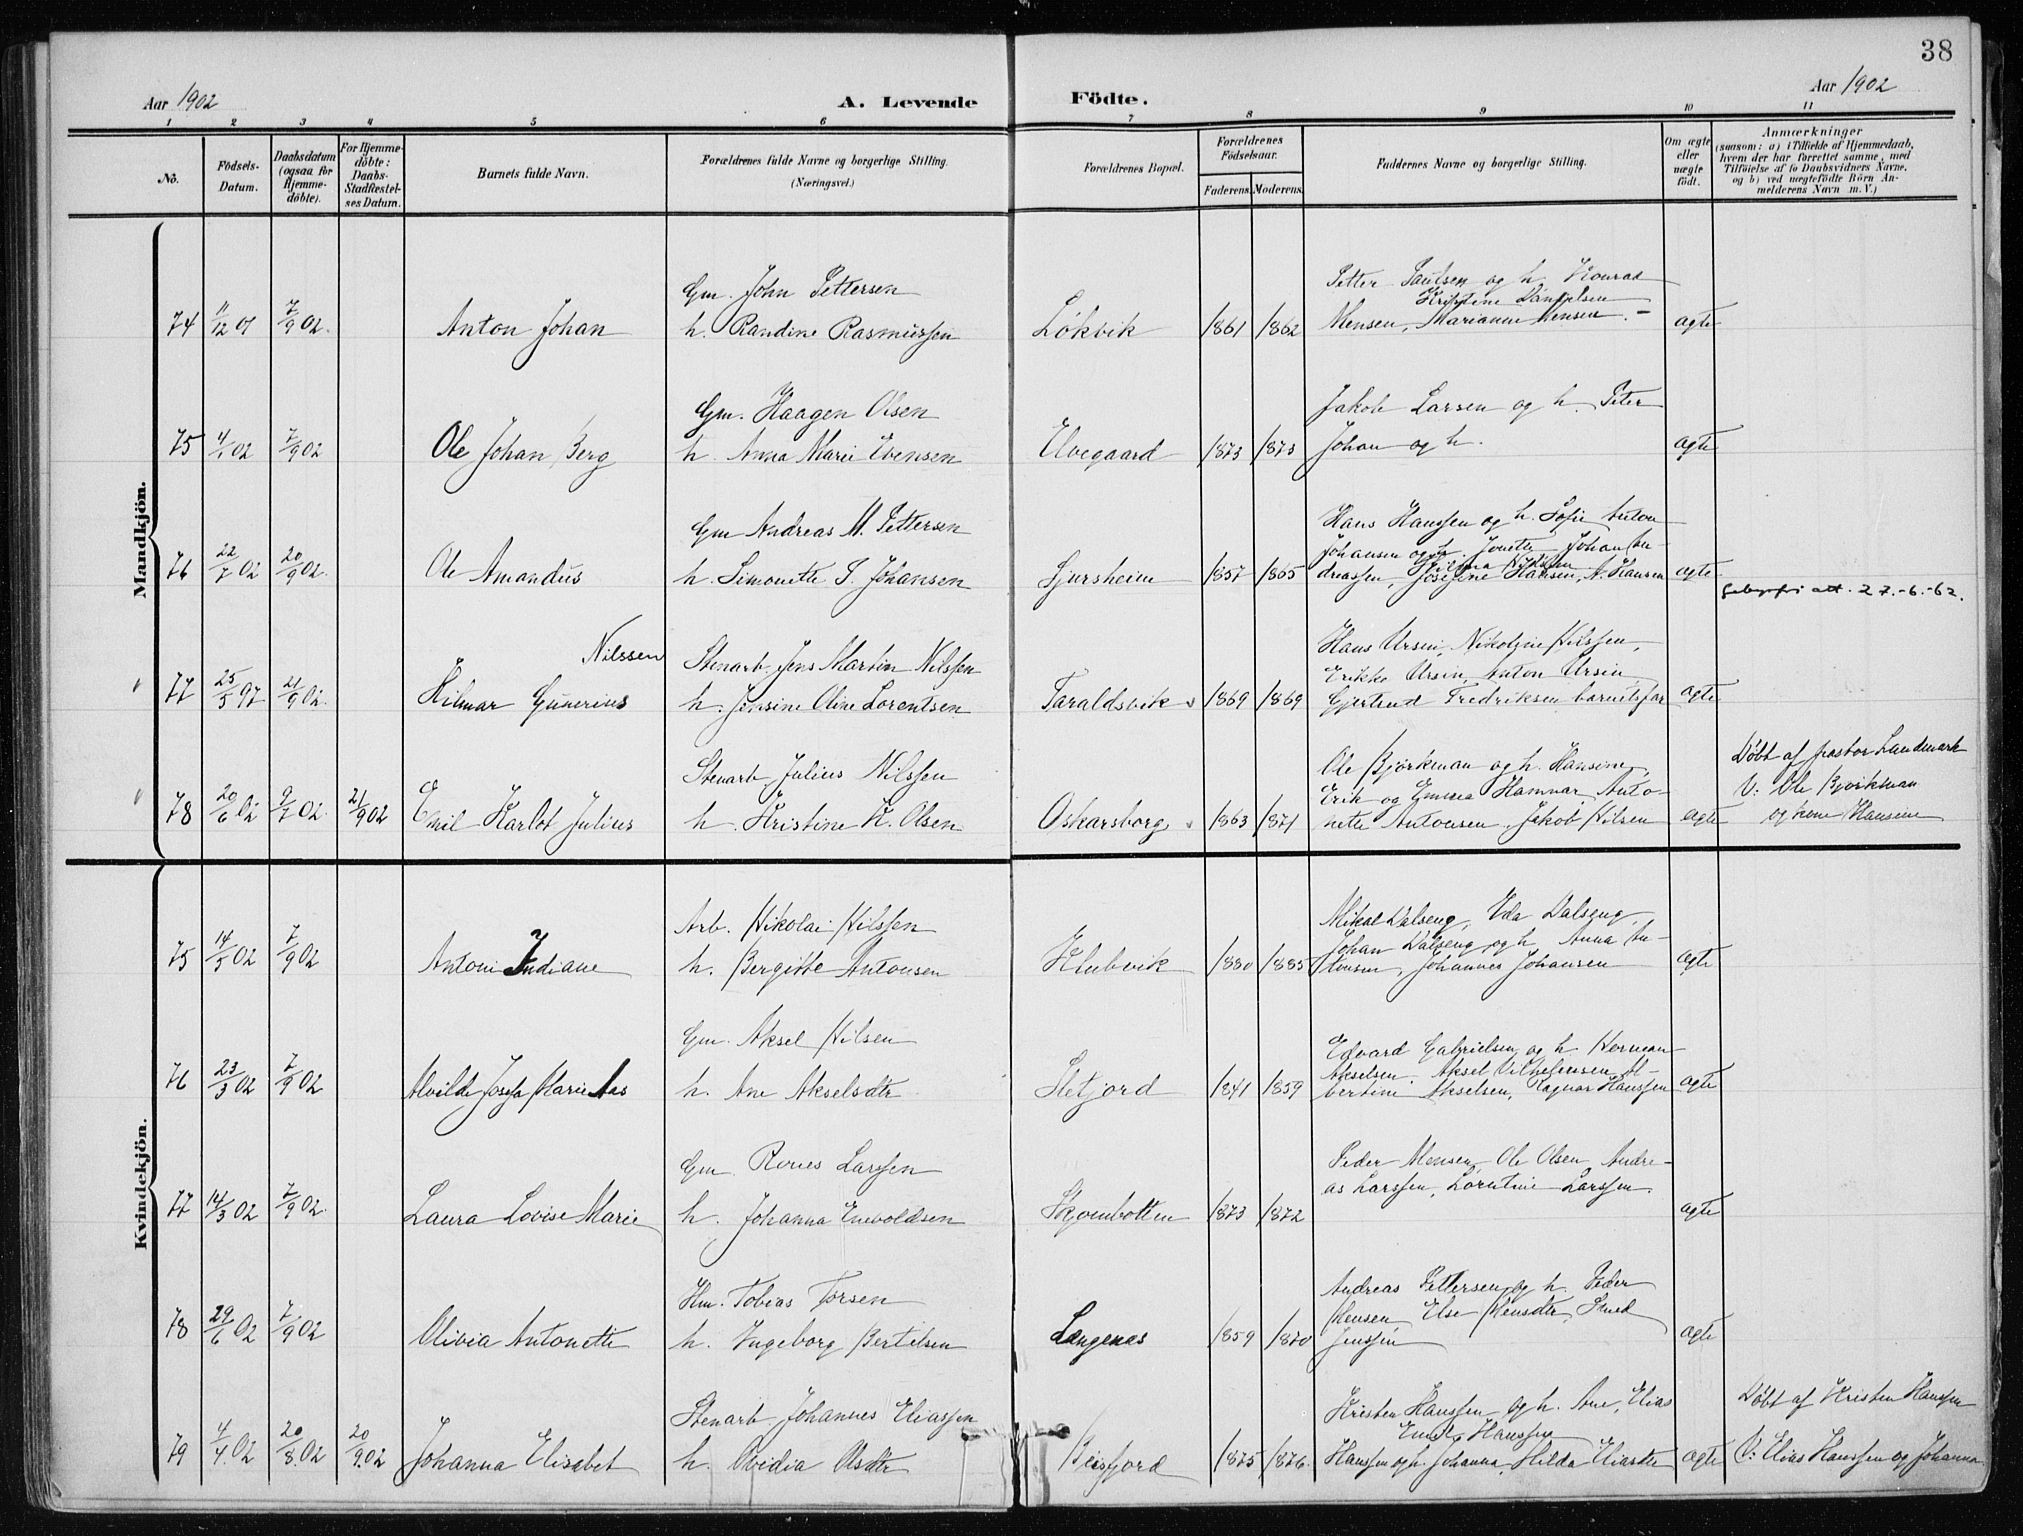 38
Aar 1902
A. Levende
Födte.
Aar 1902
1 2 3 4 5 6 7 8 9 10 11
No.
Födsels-
Datum.
Daabsdatum
(ogsaa for
Hjemme-
döbte).
For Hjemme-
döbte:
Daabs-
Stadfæstel-
ses Datum.
Barnets fulde Navn.
Forældrenes fulde Navne og borgerlige Stilling.
(Næringsvei.)
Forældrenes Bopæl.
Forældrenes
Födselsaar.
Faderens. Moderens.
Faddernes Navne og borgerlige Stilling.
Om ægte
eller
uægte
födt.
Anmærkninger
(saasom: a) i Tilfælde af Hjemmedaab,
hvem der har forrettet samme, med
Tilföielse af to Daabsvidners Navne.
og b) ved uægtefödte Börn An-
melderens Navn m. V.)
Mandkjön.
74 11/12 01 7/9 02. Anton Johan
Gm. John Pettersen
h. Randine Rasmussen
Løkvik 1861 1862
Petter Paulsen og h. Konrad
Kristine Danielsen
Mensen, Marianne Mensen. –
ægte
75 4/1 02 7/9 02 Ole Johan Berg
Gm. Haagen Olsen
h. Anna Marie Evensen
Elvegaard 1873 1873
Jakob Larsen og h. Peter
Johan og h.
ægte
76 22/7 02 20/9 02. Ole Amandus
Gm Andreas M. Pettersen
h. Simonette S. Johansen
Sjursheim 1857 1865
Hans Hanssen og h. Sofie Anton
Johansen og h. Jonette Johan An-
dreassen, Josefine Hansen, A. Hansen
ægte
gebyrfri att. 27.-6.-62.
77 25/5 97 21/9 02. Hilmar Gunerius Nilssen
Stenarb. Jens Martin Nilssen
h. Jensine Oline Lorentsen
Taraldsvik 1869 1869
Hans Ursin, Nikoline Nilssen,
Erikke Ursin, Anton Ursin
Gjertrud Fredriksen barnets far
ægte
78 20/6 02 9/7 02. 21/9 02 Emil Karlot Julius
Stenarb. Julius Nilssen
h. Kristine K. Olsen
Oskarsborg 1863 1871
Ole Bjørkman og h. Hansine,
Erik og Emma Hamnar, Anto-
nette Antonsen, Jakob Nilsen
ægte
Døbt af pastor Landmark
V: Ole Bjørkman
og kone Hansine
Kvindekjön.
75 14/5 02 7/9 02 Antoni Indiane
Arb. Nikolai Nilssen
h. Bergitte Antonsen
Klubvik 1880 1885
Mikal Dalseng, Eda Dalseng,
Johan Dalseng og h. Anna An-
tonsen, Johannes Johansen
ægte
76 23/3 02 7/9 02 Alvilde Josefa Marie Aas
Gm. Aksel Nilsen
h. Ane Akselsdtr
Stefjord 1841 1859
Edvard Gabrielsen og h. Herman
Akselsen. Aksel Vilhelmsen Al-
bertine Akselsen, Ragnar Hanssen
ægte
77 14/3 02 7/9 02. Laura Lovise Marie
Gm Rones Larssen
h. Johanna Enevoldsen
Skjombotten 1873 1872
Peder Mensen, Ole Olsen, Andre-
as Larssen, Lorntine Larssen.
ægte
78 29/6 02 7/9 02 Olivia Antonette
Hm. Tobias Torsen
h. Ingeborg Bertelsen
Langenes 1859 1870
Andreas Pettersen og h. Peder
Mensen Else Mensdtr,
Jenssen
ægte
79 4/4 02 20/8 02 20/9 02 Johanna Elisabet
Stenarb. Johannes Eliassen
h. Ovidia Olsdtr
Beisfjord 1875 1876.
Kristen Hanssen og h. Ane, Elias
Emil Hanssen
Hanssen og h. Johanna, Hilda Eliasdtr
ægte
Døbt af Kristen Hanssen
V: Elias Hanssen og Johanna